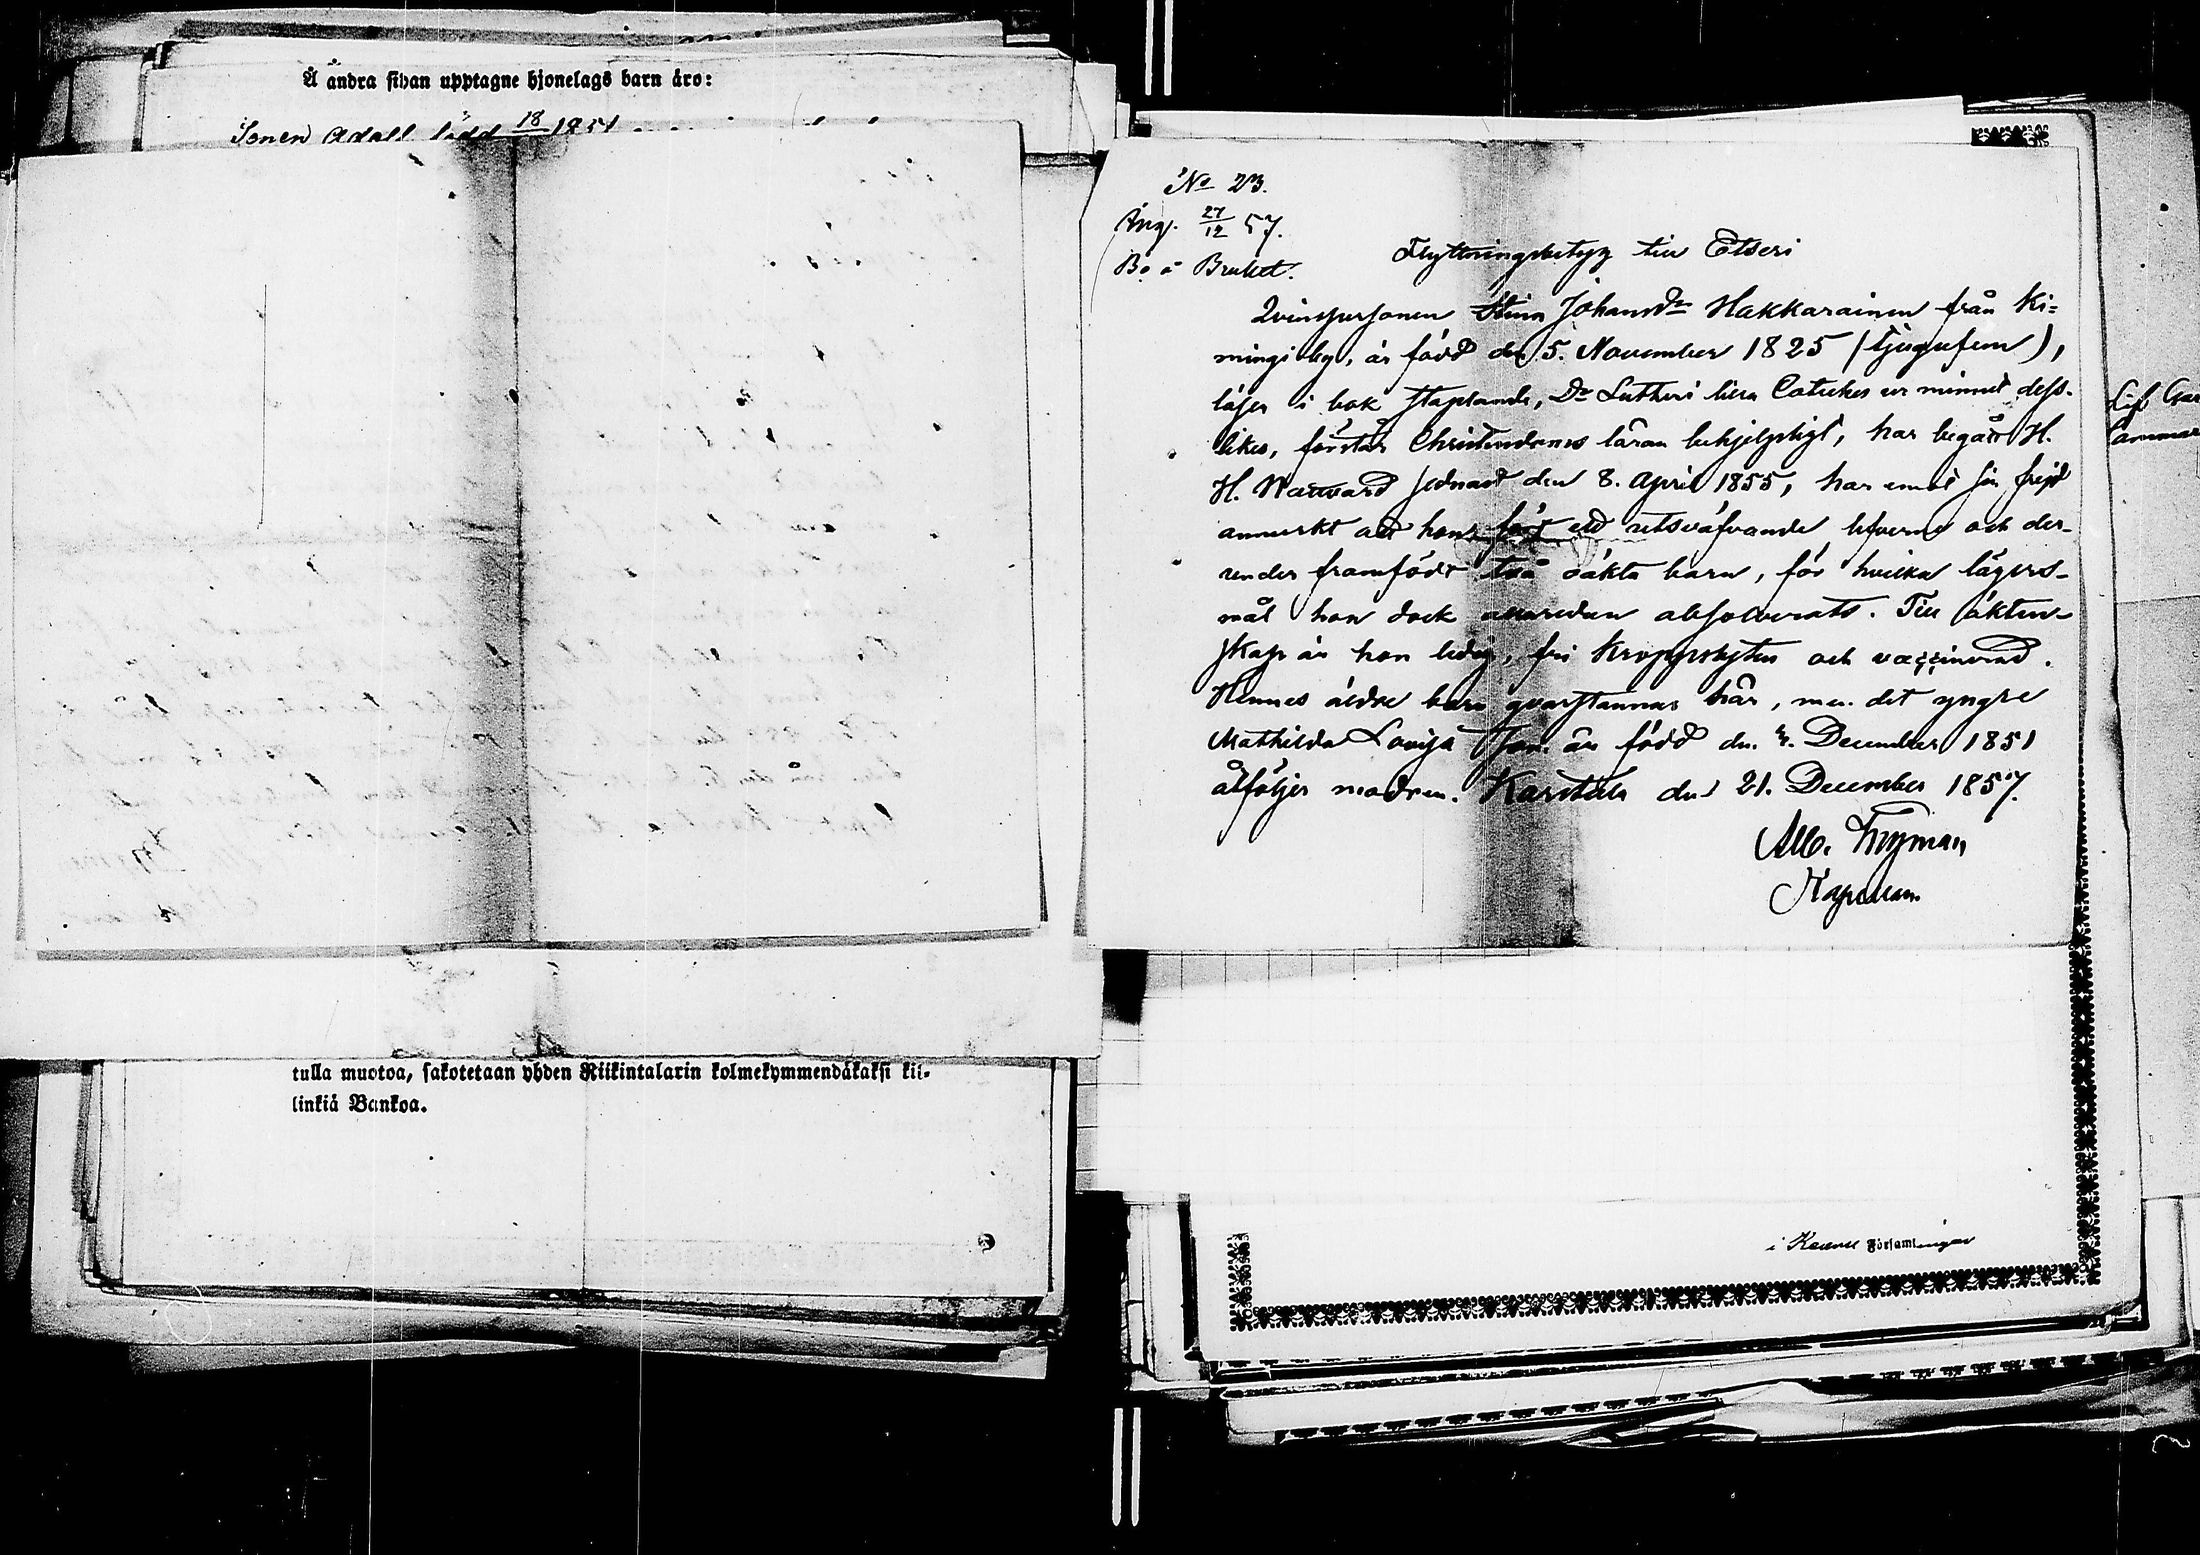 Å andra sidan upptagne hjonelags barn äro:
Sonen Adolf född 18 1851
tulla muotoa, sakotetaan yhden Riikintalarin kolmekymmendäkaksi kil-
linkiä Bankoa.
No 23.
Ång. 27/12 57.
Bo å Bruket.
Flyttningsbetyg till Etseri
Qvinspersonen Stina Johansdr Hakkarainen från Ki=
mingi by, är född den 5. November 1825 (tjugufem),
läser i bok staplande, Dr Lutheri lilla Catekes ur minnet dess-
likes, förstår Christendoms läran behjelpligt, har begått H.
H. Nattvard sednast den 8. April 1855, har emot sin frejd
anmerkt att hon fört ett utsväfvande lefverne och der-
under framfödt två oäkta barn, för hvilka lägers-
mål hon dock allaredan absolverats. Till äkten-
skap är hon ledig, fri kroppslyten och vaccinerad.
Hennes äldre barn qvarstannar här, men det yngre
Mathilda Lovisa som är född den 4. December 1851
åtföljer modren. Karstula den 21. December 1857.
Alb. Fryman
Kapellan.
Lif
i Församlingar